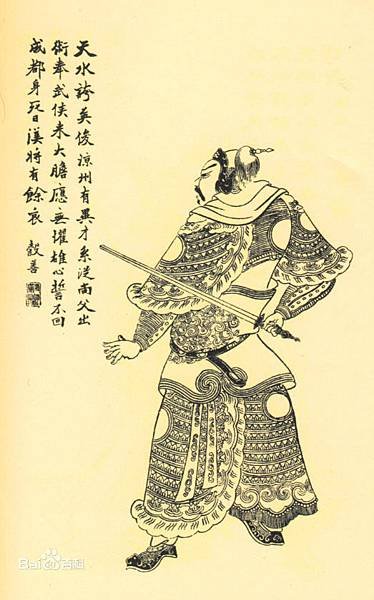 天水誇英俊涼州有異才系從尚父出
術奉武侯來大膽應無懼雄心誓不回
成都身死日漢將有餘哀 穀善
Bai百科